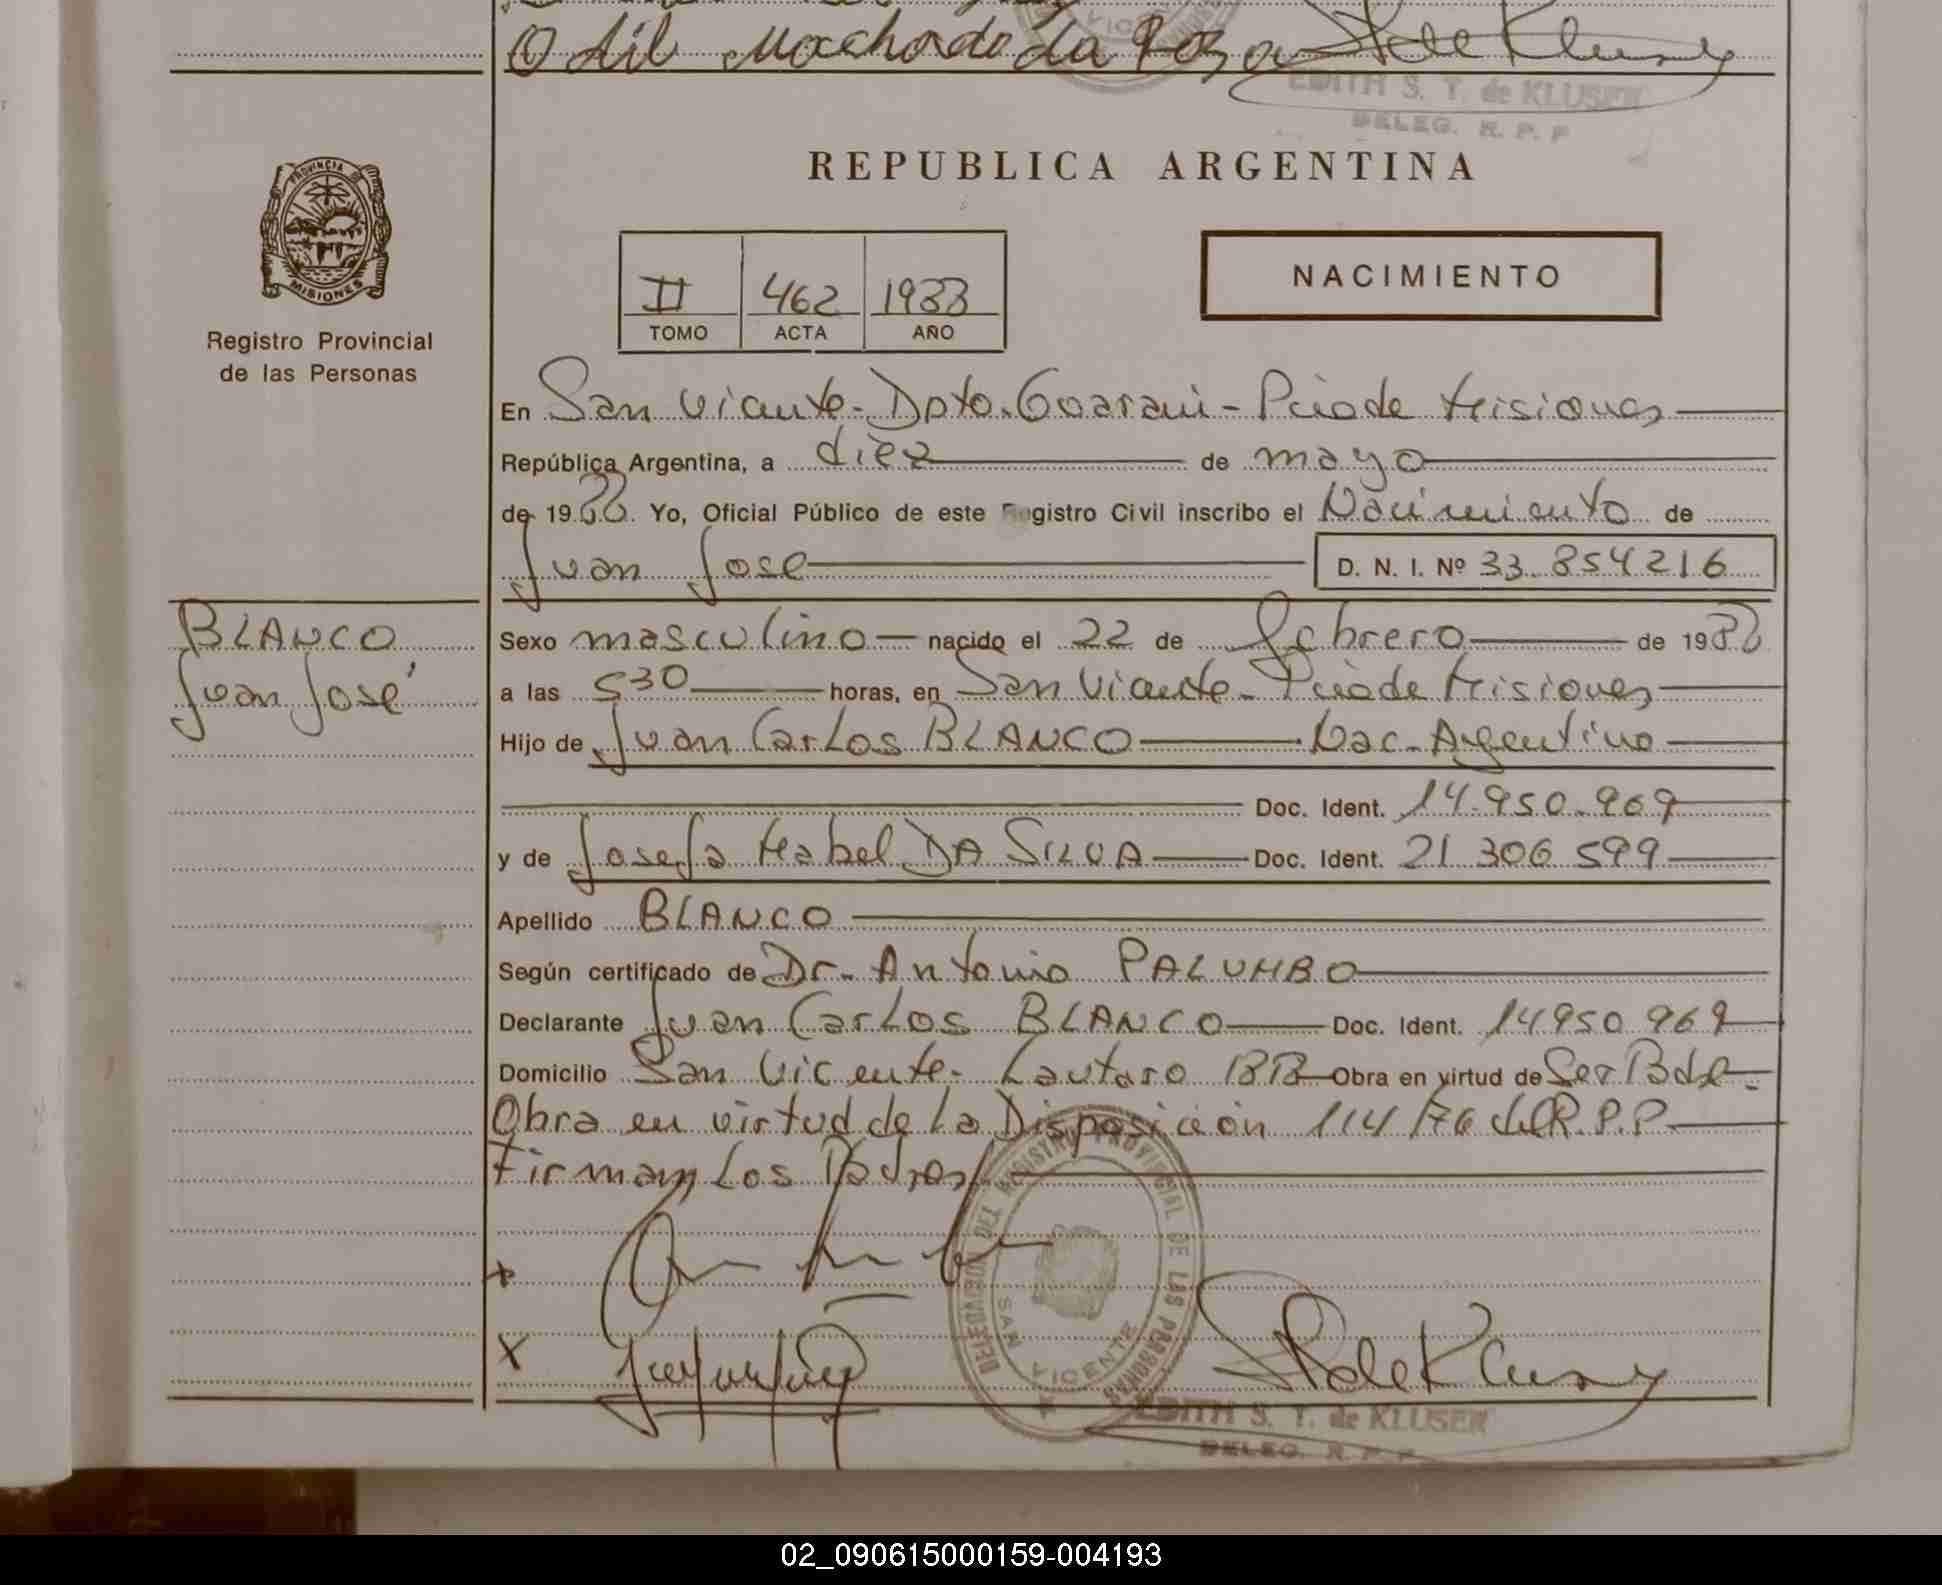 Odil Machado da Rosa
EDITH S. T. de KLUSER
DELEG. R. P. P
PROVINCIA DE
MISIONES
Registro Provincial
de las Personas
REPUBLICA ARGENTINA
II 462 1988
TOMO ACTA AÑO
NACIMIENTO
En San Vicente - Dpto. Guarani - Pcia de Misiones
República Argentina, a diez de mayo
de 1988. Yo, Oficial Público de este Registro Civil inscribo el Nacimiento de
Juan Jose D. N. I. Nº 33.854216
BLANCO
Juan José
Sexo masculino nacido el 22 de febrero de 1988
a las 530 horas, en San Vicente - Pcia de Misiones
Hijo de Juan Carlos BLANCO Nac. Argentino
Doc. Ident. 14.950.969
y de Josefa Mabel DA SILVA Doc. Ident. 21 306 599
Apellido BLANCO
Según certificado de Dr. Antonio PALUMBO
Declarante Juan Carlos BLANCO Doc. Ident. 14950 969
Domicilio San Vicente - Lautaro 188 Obra en virtud de Ser Padre.
Obra en virtud de la Disposición 114/76 del R.P.P.
Firman Los Padres
DELEGACION DEL REGISTRO PROVINCIAL DE LAS PERSONAS
SAN VICENTE
EDITH S. T. de KLUSER
DELEG. R. P. P.
02_090615000159-004193